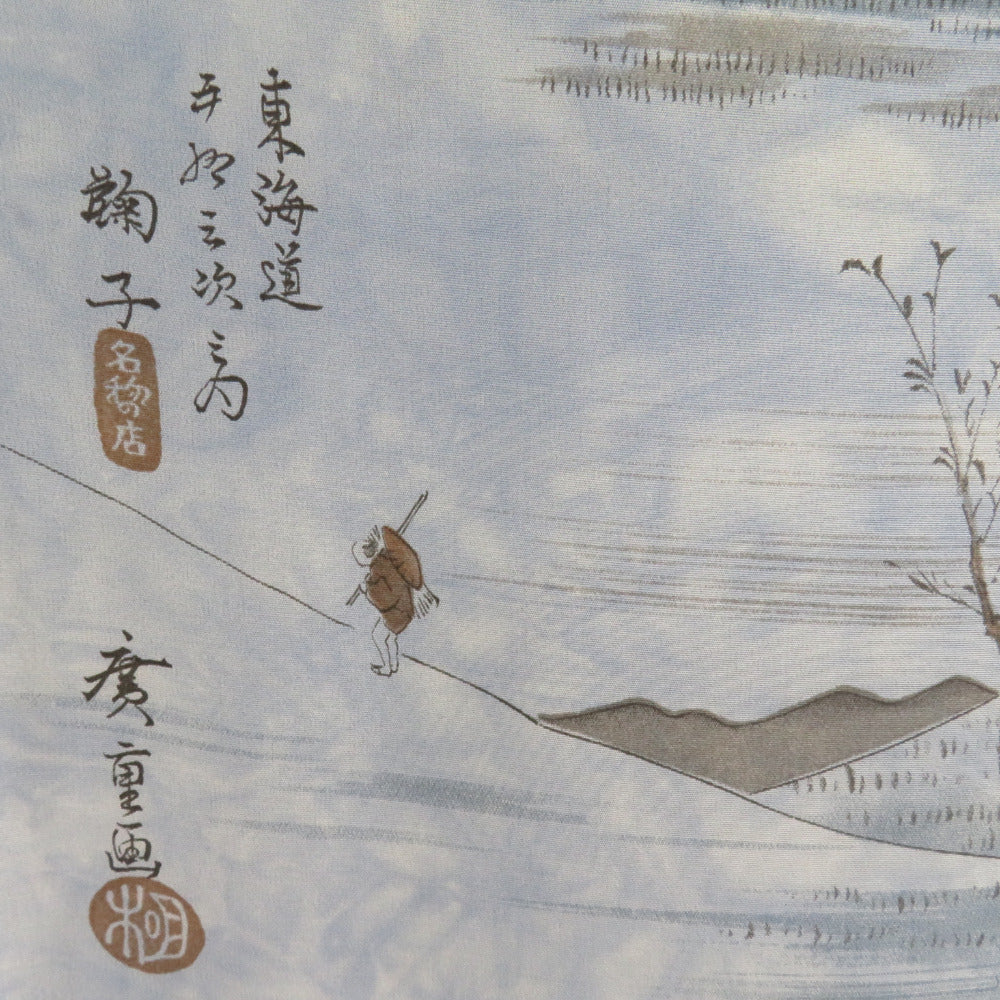 東海道
五拾三次之内
鞠子
名物の店
廣重画